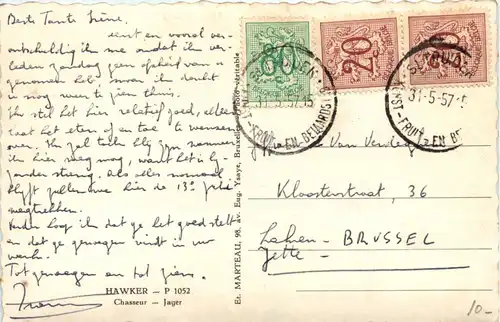 Beste Tante Irène.
eerst en vooral ver-
ontschuldig ik me omdat ik ver-
leden zondag geen afscheid van u
genomen heb, maar ik dacht
u nog weer te zien thuis.
Ik stel het hier relatief goed, alleen
laat het eten af en toe te wensen
over. Ik zal toch blij zijn wanneer
ik hier weg mag, want het is bij-
zonder streng. Als alles normaal
blijft zullen we hier de 13e
wegtrekken.
Verder hoop ik dat ge het goed stelt
en dat ge genoegen vindt in uw
werk.
Tot genoegen en tot ziens.
HAWKER — P 1052
Chasseur — Jager
Et. MARTEAU, 98, av. Eug. Ysaye, Bruxelles
80
20
31-5-57
FRUIT- EN
31-5-57
FRUIT- EN
Van
Kloosterstraat, 36
Laken - BRUSSEL
Jette
10-